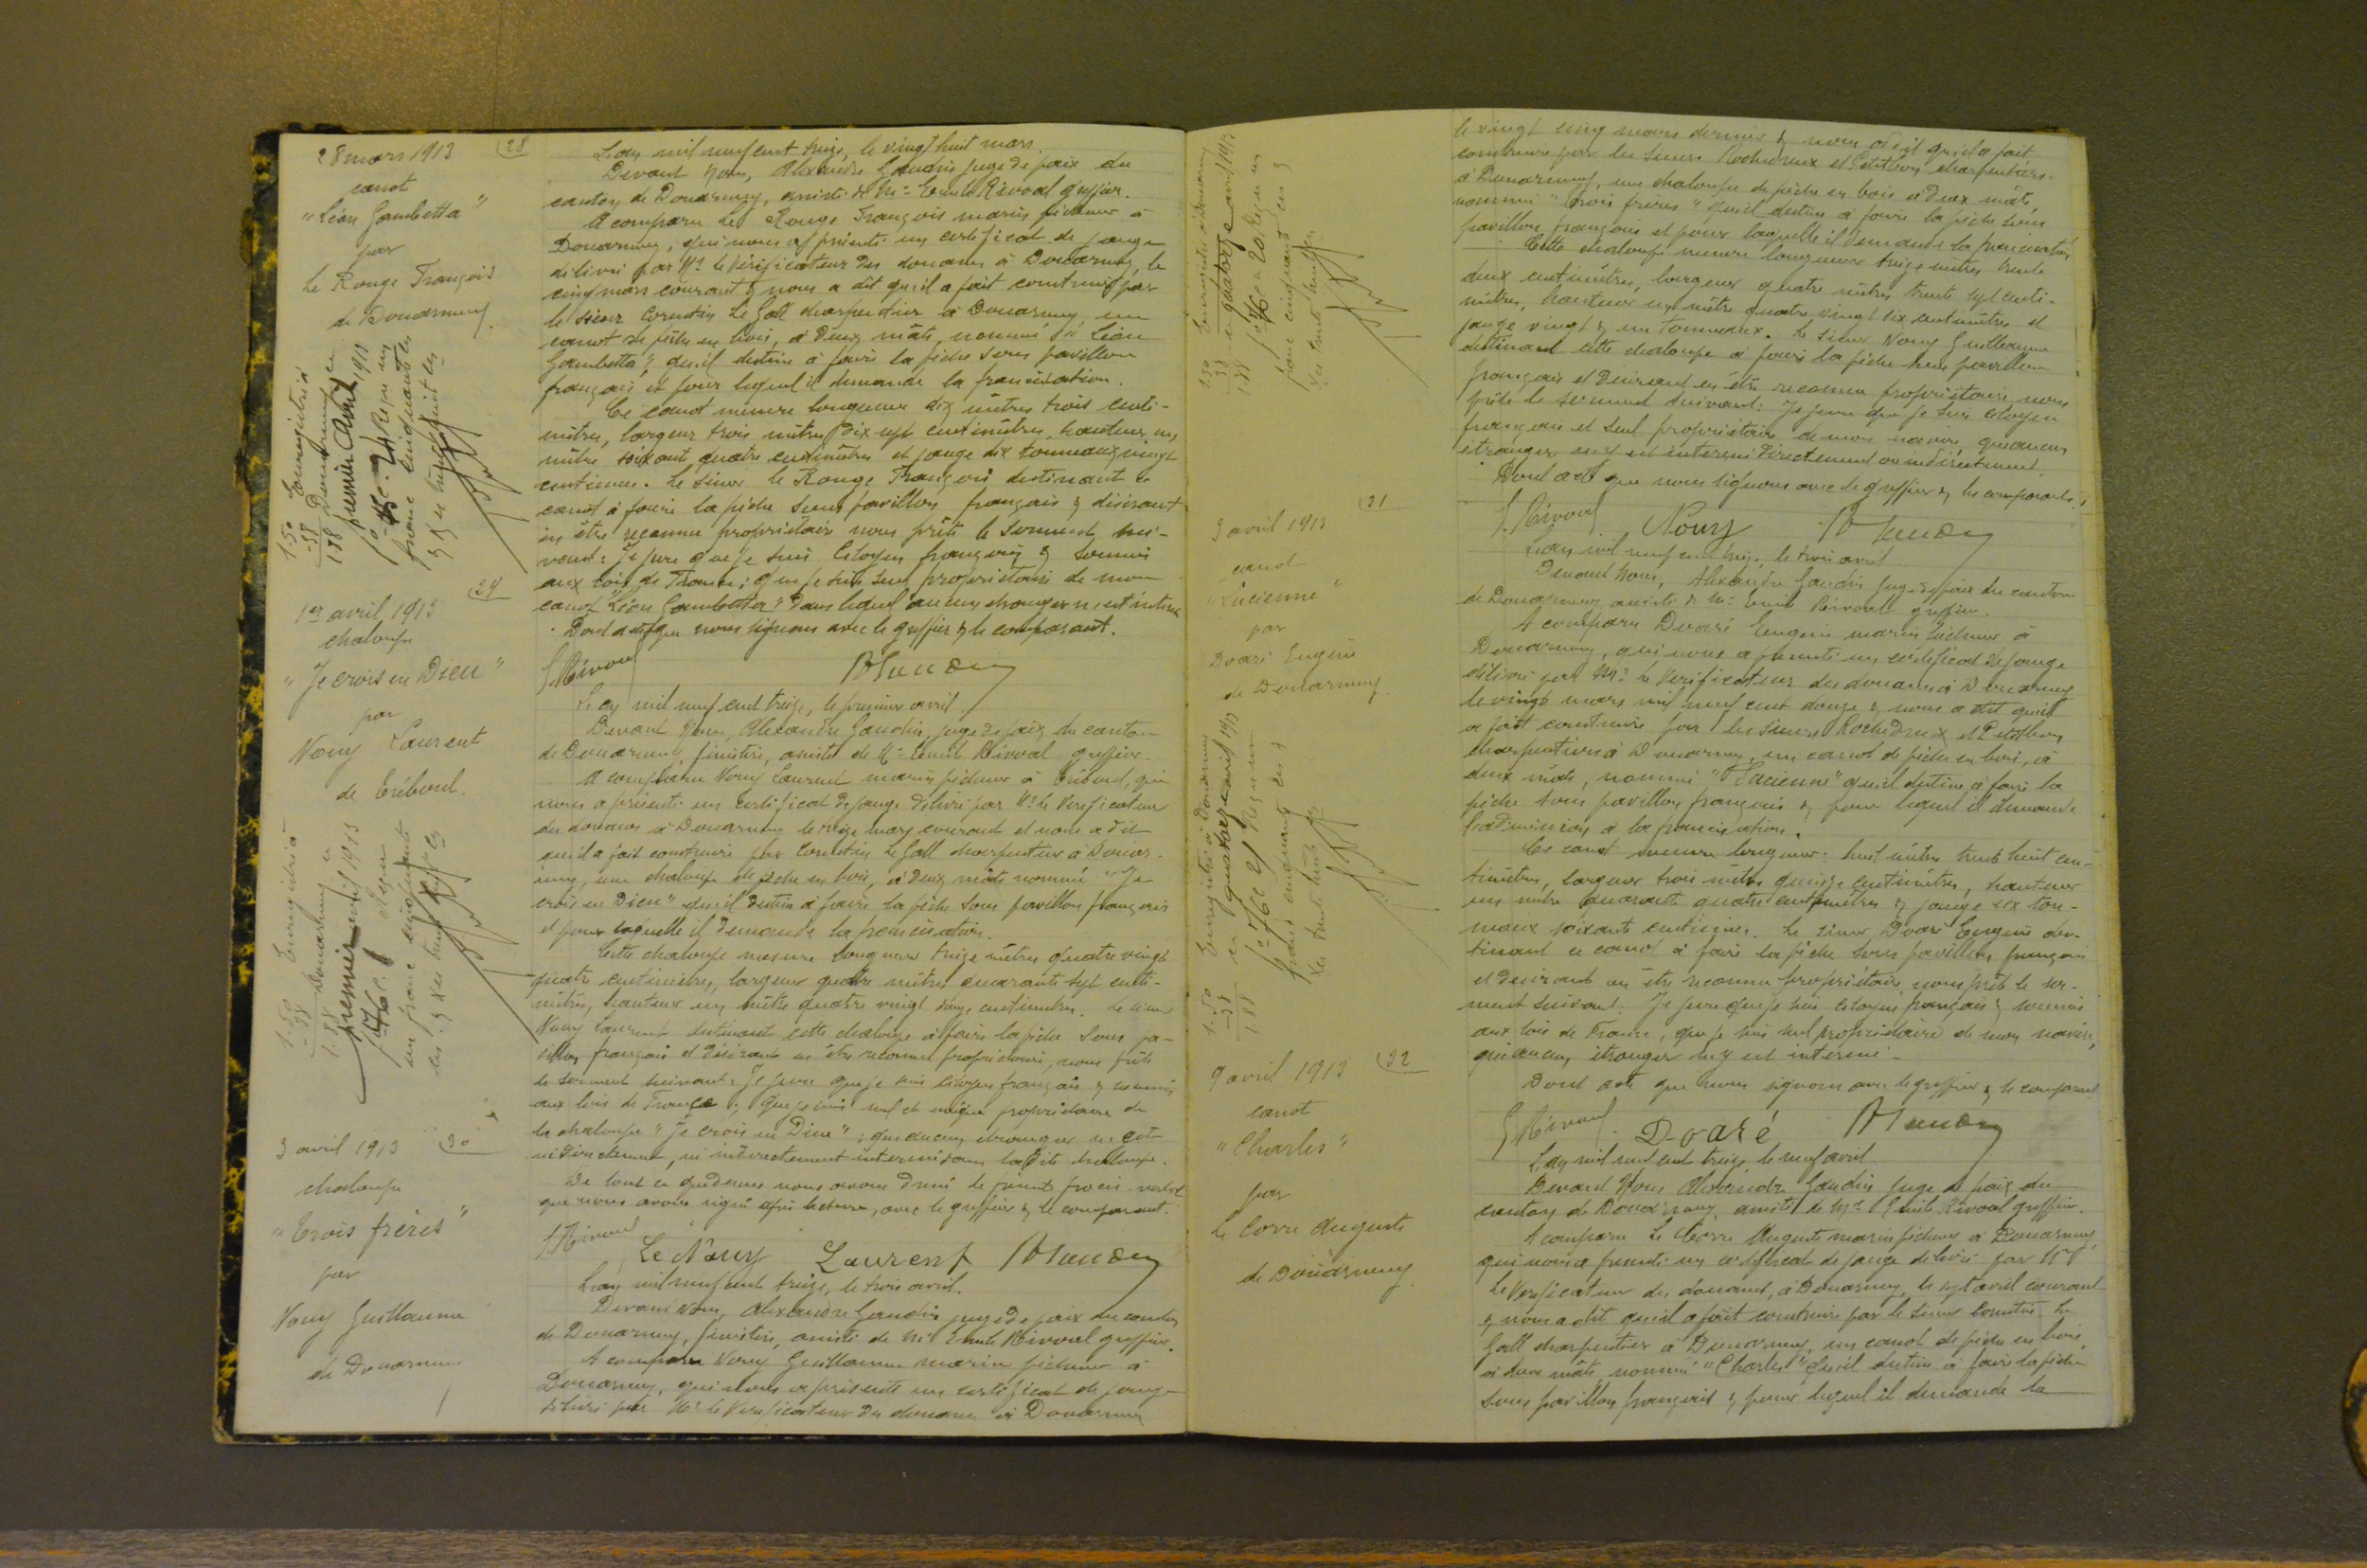 28 mars 1913
28
canot
"Léon Gambetta"
par
Le Rouge François
de Douarnenez
L'an mil neuf cent treize, le vingt huit mars.
Devant Nous, Alexandre Gaudin juge de paix du
canton de Douarnenez, assisté de Me Emile Rivoal greffier.
A comparu Le Rouge François marin pêcheur à
Douarnenez, qui nous a présenté un certificat de jauge
délivré par Mr le Vérificateur des douanes à Douarnenez, le
cinq mars courant & nous a dit qu'il a fait construire par
le sieur Corentin Le Gall charpentier à Douarnenez, un
canot de pêche en bois, à deux mâts, nommé "Léon
Gambetta", qu'il destine à faire la pêche sous pavillon
français et pour lequel il demande la francisation.
Ce canot mesure longueur dix mètres trois centi-
mètres, largeur trois mètres dix sept centimètres, hauteur un
mètre soixante quatre centimètres et jauge dix tonneaux vingt
centièmes. Le sieur Le Rouge François destinant ce
canot à faire la pêche sous pavillon français & désirant
en être reconnu propriétaire nous prête le serment sui-
vant: Je jure que je suis citoyen français & soumis
aux lois de France; que je suis seul propriétaire de mon
canot "Léon Gambetta" dans lequel aucun étranger n'est intéressé
Dont acte que nous signons avec le greffier & le comparant.
E. Rivoal
A Gaudin
1.50
-38
1.88
Enregistré à
Douarnenez le
premier avril 1913
Reçu un
franc cinquante ces
29
1er avril 1913
chaloupe
"Je crois en Dieu"
par
Nouy Laurent
de Tréboul.
L'an mil neuf cent treize, le premier avril.
Devant Nous, Alexandre Gaudin, juge de paix du canton
de Douarnenez, finistère, assisté de Me Emile Rivoal greffier.
A comparu Nouy Laurent marin pêcheur à Tréboul, qui
nous a présenté un certificat de jauge délivré par Mr le Vérificateur
des douanes à Douarnenez le treize mars courant et nous a dit
qu'il a fait construire par Corentin Le Gall charpentier à Douar-
nenez, une chaloupe de pêche en bois, à deux mâts nommé "Je
crois en Dieu" qu'il destine à faire la pêche sous pavillon français
et pour laquelle il demande la francisation.
Cette chaloupe mesure longueur treize mètres quatre vingt
quatre centimètres, largeur quatre mètres quarante sept centi-
mètres, hauteur un mètre quatre vingt douze centimètres. Le sieur
Nouy Laurent destinant cette chaloupe à faire la pêche sous pa-
villon français et désirant en être reconnu propriétaire, nous prête
le serment suivant: Je jure que je suis citoyen français & soumis
aux lois de France; que je suis seul et unique propriétaire de
la chaloupe "Je crois en Dieu"; que aucun étranger n'est
ni directement, ni indirectement intéressé dans la dite chaloupe.
De tout ce que dessus nous avons dressé le présent procès-verbal
que nous avons signé après lecture, avec le greffier & le comparant.
E. Rivoal
Le Nouy Laurent A Gaudin
1.50
-38
1.88
Enregistré à
Douarnenez le
premier avril 1913
Reçu
un franc cinquante
3 avril 1913
30
chaloupe
"Trois frères"
par
Nouy Guillaume
de Douarnenez
L'an mil neuf cent treize, le trois avril.
Devant Nous, Alexandre Gaudin juge de paix du canton
de Douarnenez, finistère, assisté de Me Emile Rivoal greffier.
A comparu Nouy Guillaume marin pêcheur à
Douarnenez, qui nous a présenté un certificat de jauge
délivré par Mr le Vérificateur des douanes à Douarnenez
le vingt cinq mars dernier & nous a dit qu'il a fait
construire par les sieurs Rochedreux et Petitbon charpentiers
à Douarnenez, une chaloupe de pêche en bois à deux mâts,
nommé "Trois frères" qu'il destine à faire la pêche sous
pavillon français et pour laquelle il demande la francisation
Cette chaloupe mesure longueur treize mètres trente
deux centimètres, largeur quatre mètres trente sept centi-
mètres, hauteur un mètre quatre vingt dix centimètres et
jauge vingt & un tonneaux. Le sieur Nouy Guillaume
destinant cette chaloupe à faire la pêche sous pavillon
français et désirant en être reconnu propriétaire nous
prête le serment suivant: Je jure que je suis citoyen
français et seul propriétaire de mon navire, qu'aucun
étranger n'y est intéressé directement ou indirectement.
Dont acte que nous signons avec le greffier & les comparants.
E. Rivoal Nouy A Gaudin
1.50
38
1.88
Enregistré à Douarnenez
le quatorze avril 1913
Reçu un
franc cinquante ces
31
3 avril 1913
canot
"Lucienne"
par
Doaré Eugène
de Douarnenez
L'an mil neuf cent treize, le trois avril
Devant Nous, Alexandre Gaudin juge de paix du canton
de Douarnenez assisté de Me Emile Rivoal greffier.
A comparu Doaré Eugène marin pêcheur à
Douarnenez, qui nous a présenté un certificat de jauge
délivré par Mr le Vérificateur des douanes à Douarnenez
le vingt mars mil neuf cent douze & nous a dit qu'il
a fait construire par les sieurs Rochedreux et Petitbon
charpentiers à Douarnenez, un canot de pêche en bois, à
deux mâts, nommé "Lucienne" qu'il destine à faire la
pêche sous pavillon français & pour lequel il demande
l'admission à la francisation.
Ce canot mesure longueur: huit mètres trente huit cen-
timètres, largeur trois mètres quinze centimètres, hauteur
un mètre quarante quatre centimètres & jauge six ton-
neaux soixante centièmes. Le sieur Doaré Eugène des-
tinant ce canot à faire la pêche sous pavillon français
et désirant en être reconnu propriétaire, nous prête le ser-
ment suivant: Je jure que je suis citoyen français & soumis
aux lois de France, que je suis seul propriétaire de mon navire,
qu'aucun étranger n'y est intéressé.
Dont acte que nous signons avec le greffier & le comparant
E. Rivoal. Doaré A Gaudin
1.50
-38
1.88
Enregistré à Douarnenez
le quatorze avril 1913
Reçu un
franc cinquante ces
9 avril 1913
32
canot
"Charles"
par
Le Corre Auguste
de Douarnenez
L'an mil neuf cent treize, le neuf avril.
Devant Nous Alexandre Gaudin juge de paix du
canton de Douarnenez, assisté de Me Emile Rivoal greffier.
A comparu Le Corre Auguste marin pêcheur à Douarnenez,
qui nous a présenté un certificat de jauge délivré par Mr
le Vérificateur des douanes, à Douarnenez, le sept avril courant
& nous a dit qu'il a fait construire par le sieur Corentin Le
Gall charpentier à Douarnenez, un canot de pêche en bois,
à deux mâts nommé "Charles" qu'il destine à faire la pêche
sous pavillon français & pour lequel il demande la